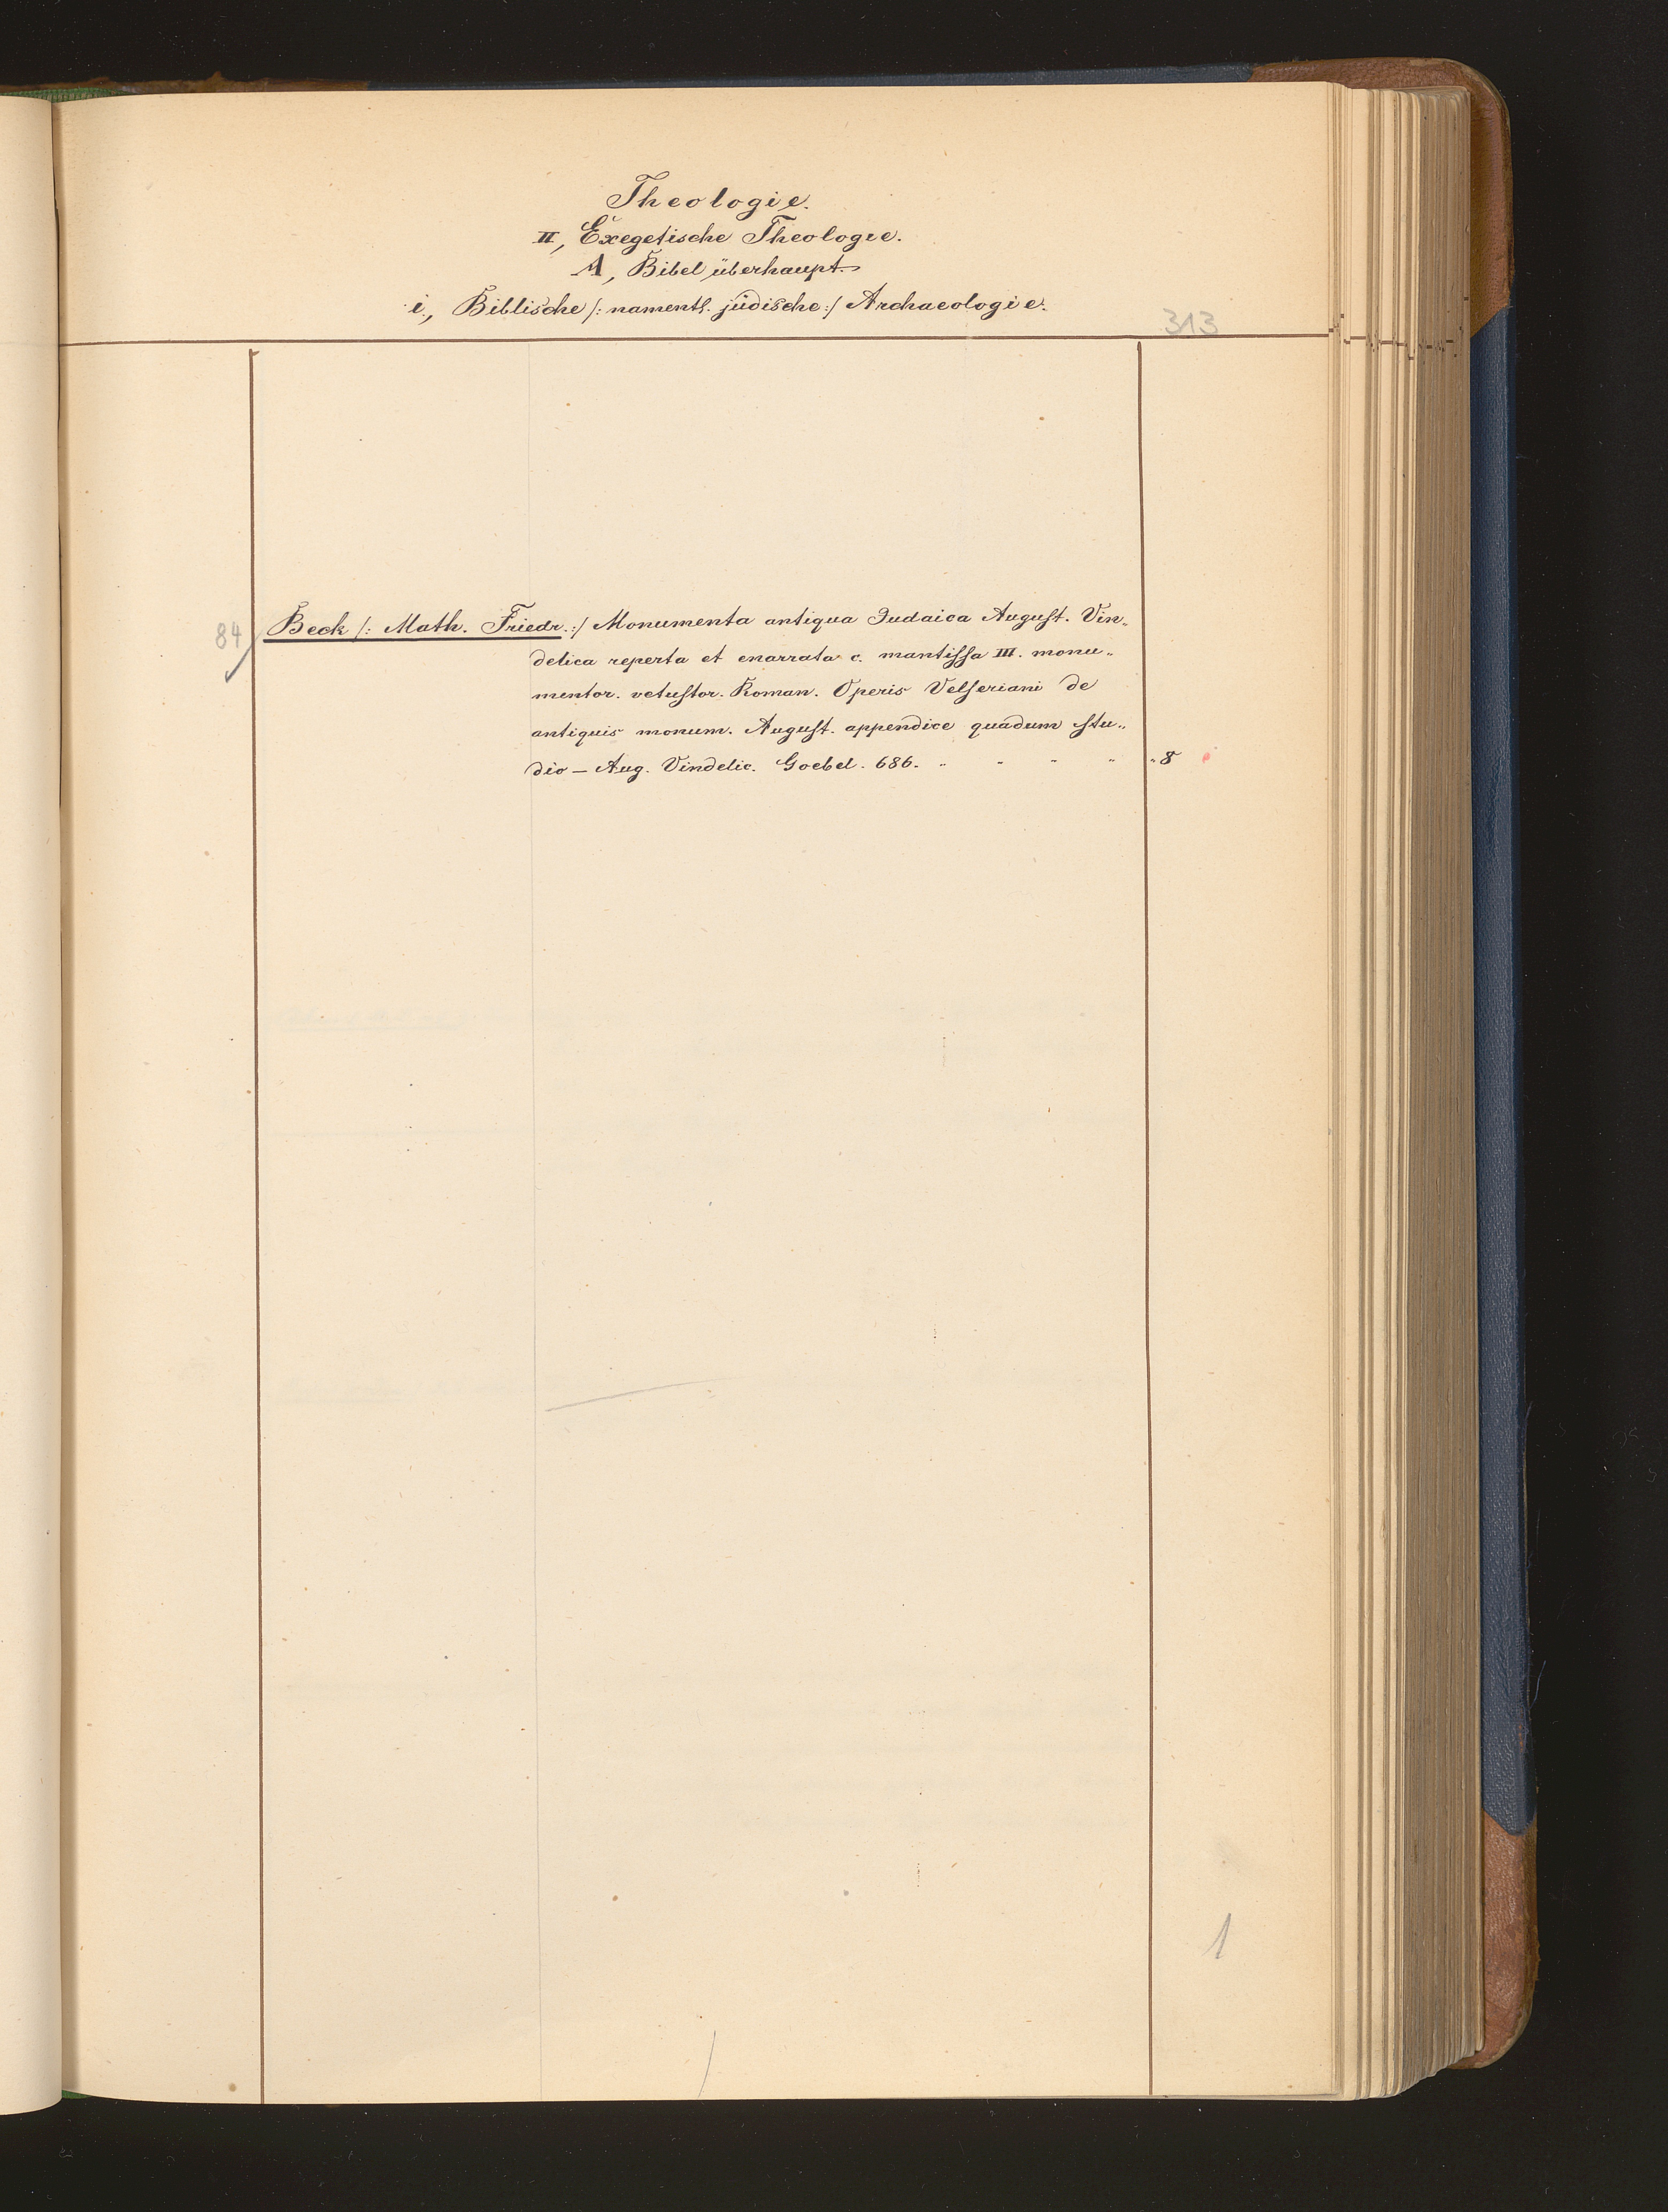 Theologie.
II, Exegetische Theologie.
A, Bibel überhaupt.
i, Biblische /: namentl. jüdische :/ Archaeologie.
313
84 Beck /: Math. Friedr. :/ Monumenta antiqua Judaica August. Vin„
delica reperta et enarrata c. mantissa III. monu„
mentor. vetustor. Roman. Operis Velseriani de
antiquis monum. August. appendice quadum stu„
dio – Aug. Vindelic. Goebel. 686. „ „ „ „ „ 8
1